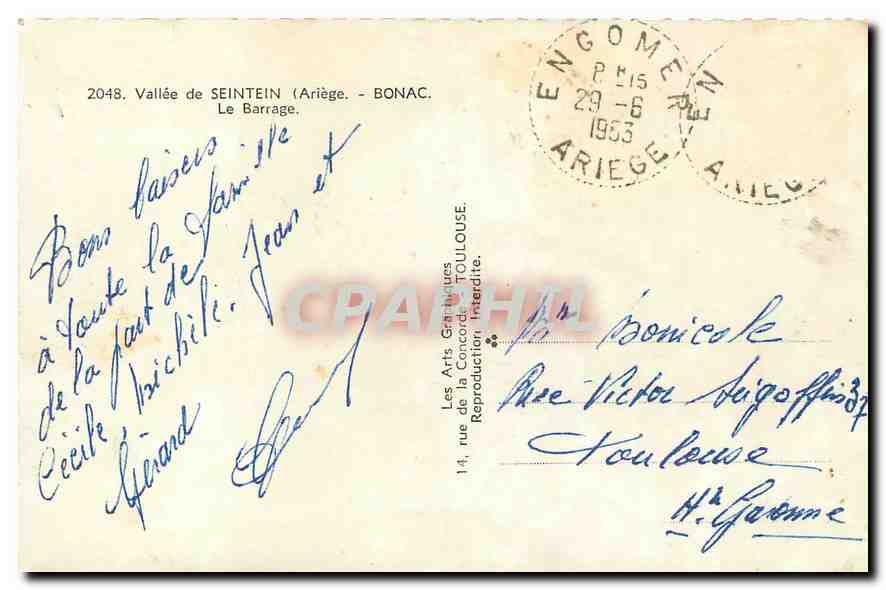 2048. Vallée de SEINTEIN (Ariège. - BONAC.
Le Barrage.
Bons baisers
à toute la famille
de la part de
Cécile, Michèle, Jean et
Gérard
Les Arts Graphiques
14, rue de la Concorde - TOULOUSE.
Reproduction Interdite.
ENGOMER
15
29 - 6
1963
ARIEGE
EN
ARIEG
CPARPHIL
Mr Bonicole
Rue Victor 37
Toulouse
Hte Garonne